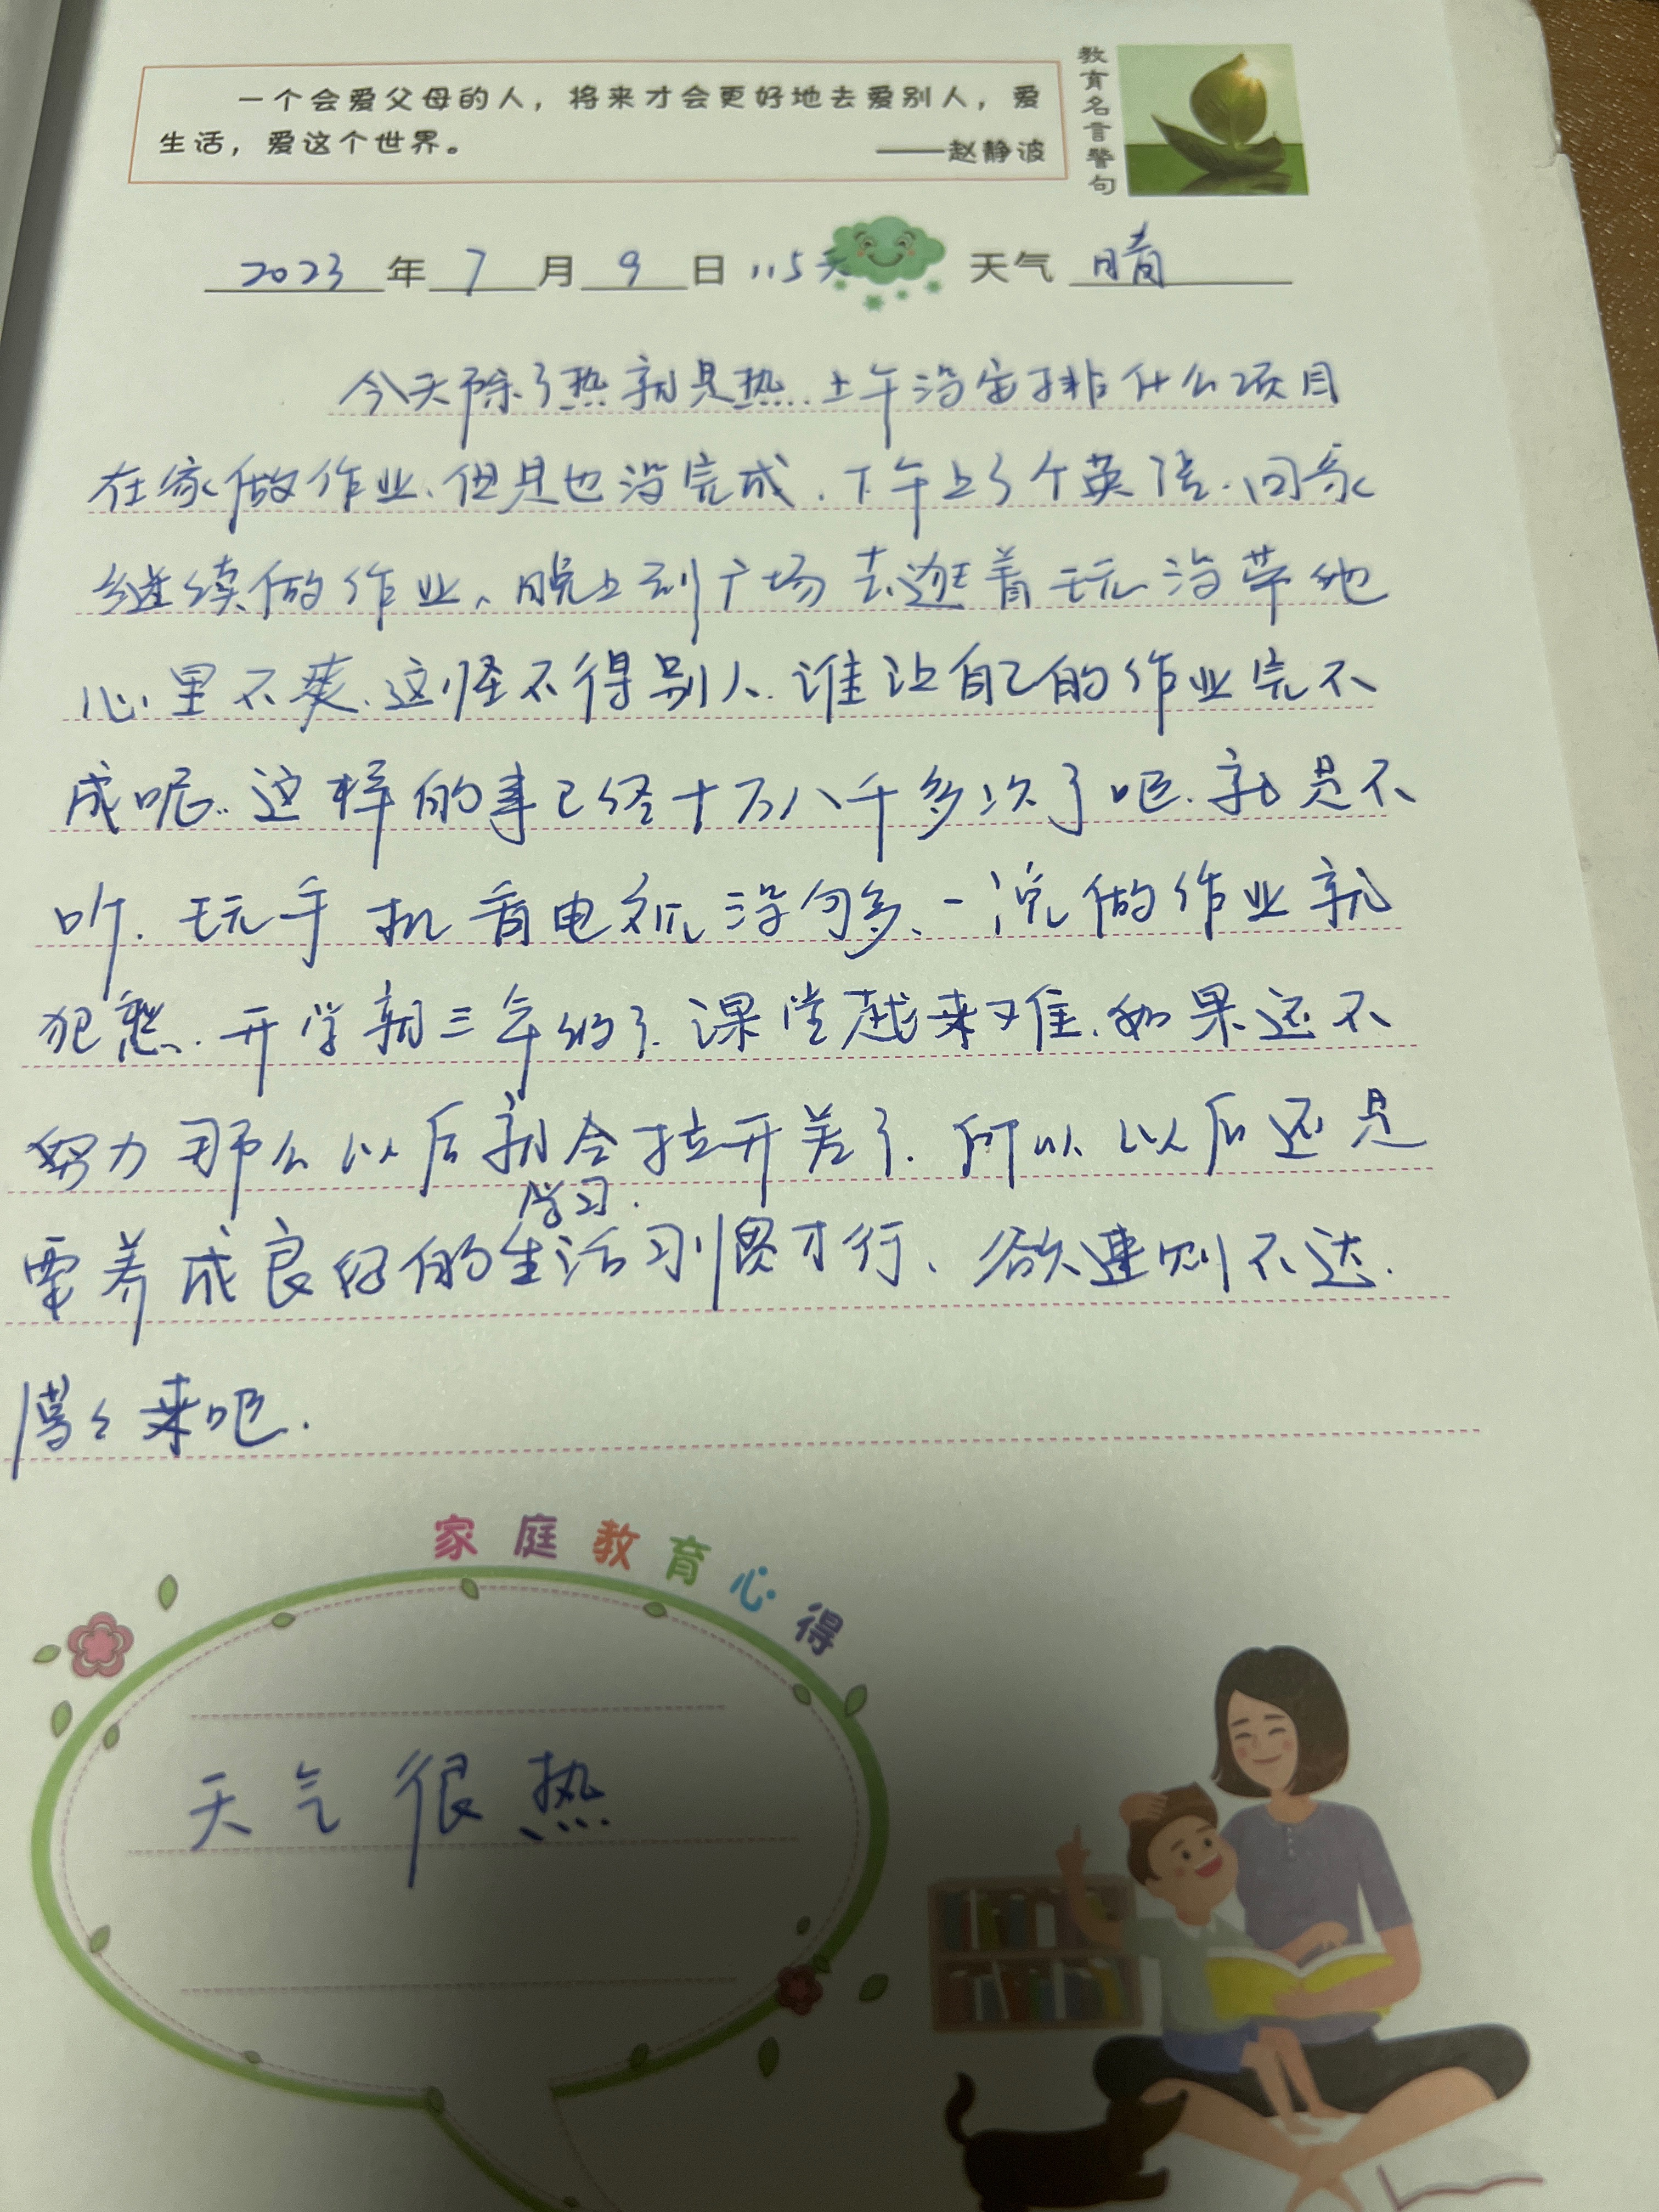 一个会爱父母的人，将来才会更好地去爱别人，爱
生活，爱这个世界。
——赵静波
教育名言警句
2023年7月9日 115天 天气 晴
今天除了热就是热..上午没安排什么项目
在家做作业、但是也没完成.下午上了个英语.回家
继续做作业、晚上到广场去逛着玩没带他
心里不爽.这怪不得别人.谁让自己的作业完不
成呢..这样的事已经十万八千多次了吧.就是不
听.玩手机看电视没够、一说做作业就
犯愁.开学就三年级了.课堂越来难.如果还不
努力那么以后就会拉开差了.所以以后还是
学习.
要养成良好的生活习惯才行、欲速则不达.
慢々来吧.
家庭教育心得
天气很热